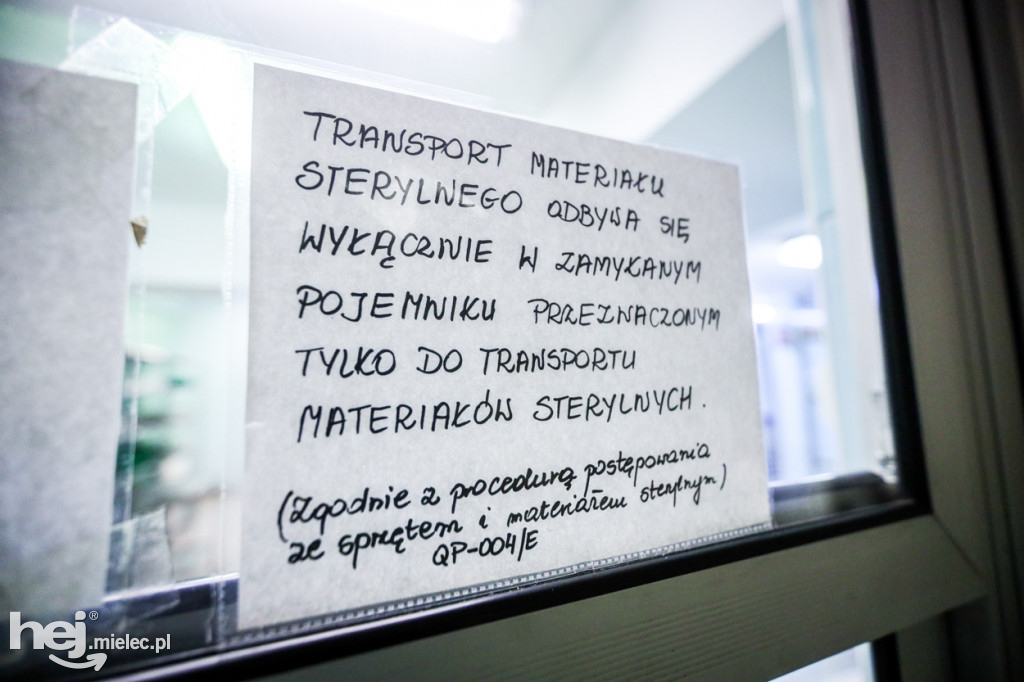 TRANSPORT MATERIAŁU
STERYLNEGO ODBYWA SIĘ
WYŁĄCZNIE W ZAMYKANYM
POJEMNIKU PRZEZNACZONYM
TYLKO DO TRANSPORTU
MATERIAŁÓW STERYLNYCH.
(Zgodnie z procedurą postępowania
ze sprzętem i materiałem sterylnym)
QP-004/E
hej®.mielec.pl